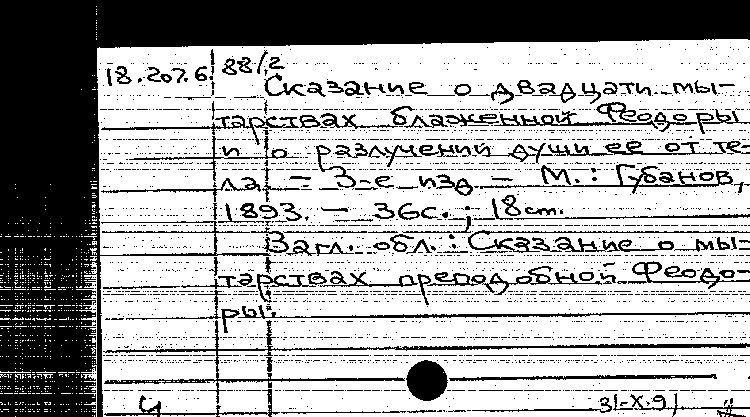 18.207.6. 88/2
Сказание о двадцати мы-
тарствах блаженной Феодоры
и о разлучении души ее от те-
ла. – 3-е изд – М.: Губанов,
1893. – 36с.; 18 cm.
Загл. обл.: Сказание о мы-
тарствах преподобной Феодо-
ры.
Ч 31-X-91